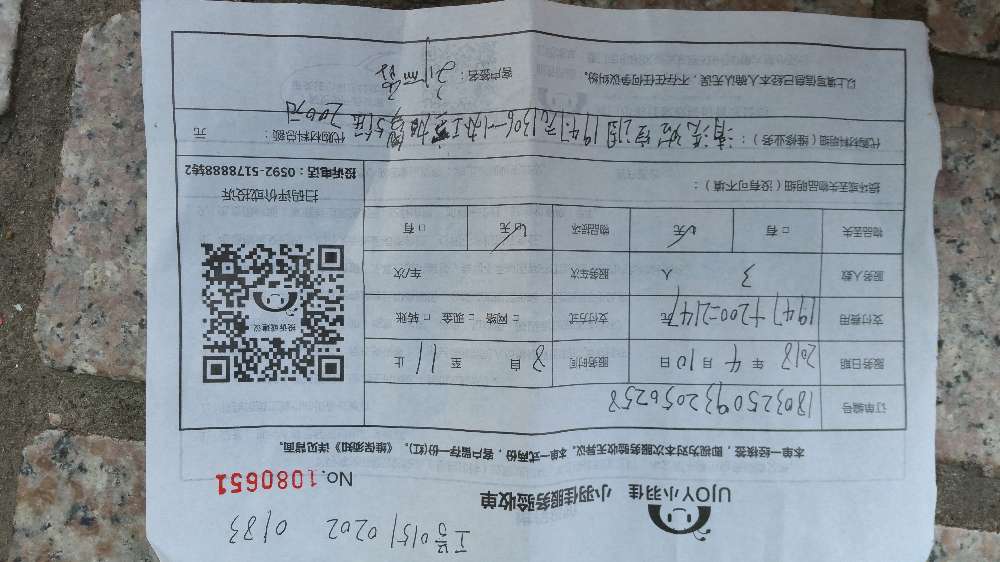 工号 0151 0202 0183
UJOY小羽佳 小羽佳服务验收单
No. 1080651
本单一经核签，即视为对本次服务验收无异议。本单一式两份，客户留存一份(红)。《维保须知》详见背面。
订单编号 1803250932056258
服务日期 2018 年 4 月 10 日 服务时间 8 自 至 11 止
支付费用 1947+200=2147元 支付方式 □ 网络 □ 现金 □ 转账
服务人数 3 人 服务车次 车/次
物品丢失 □ 有 □ 无 物品损坏 □ 无 □ 有
损坏或丢失物品明细（没有可不填）：
投诉或建议
扫码评价或投诉
投诉电话：0592-5178888转2
代购材料明细（维修业务）：清洗 空调 1947元 1306 加
代购材料总额： 200元 元
以上填写信息已经本人确认无误，不存在任何争议纠纷。
客户签名：